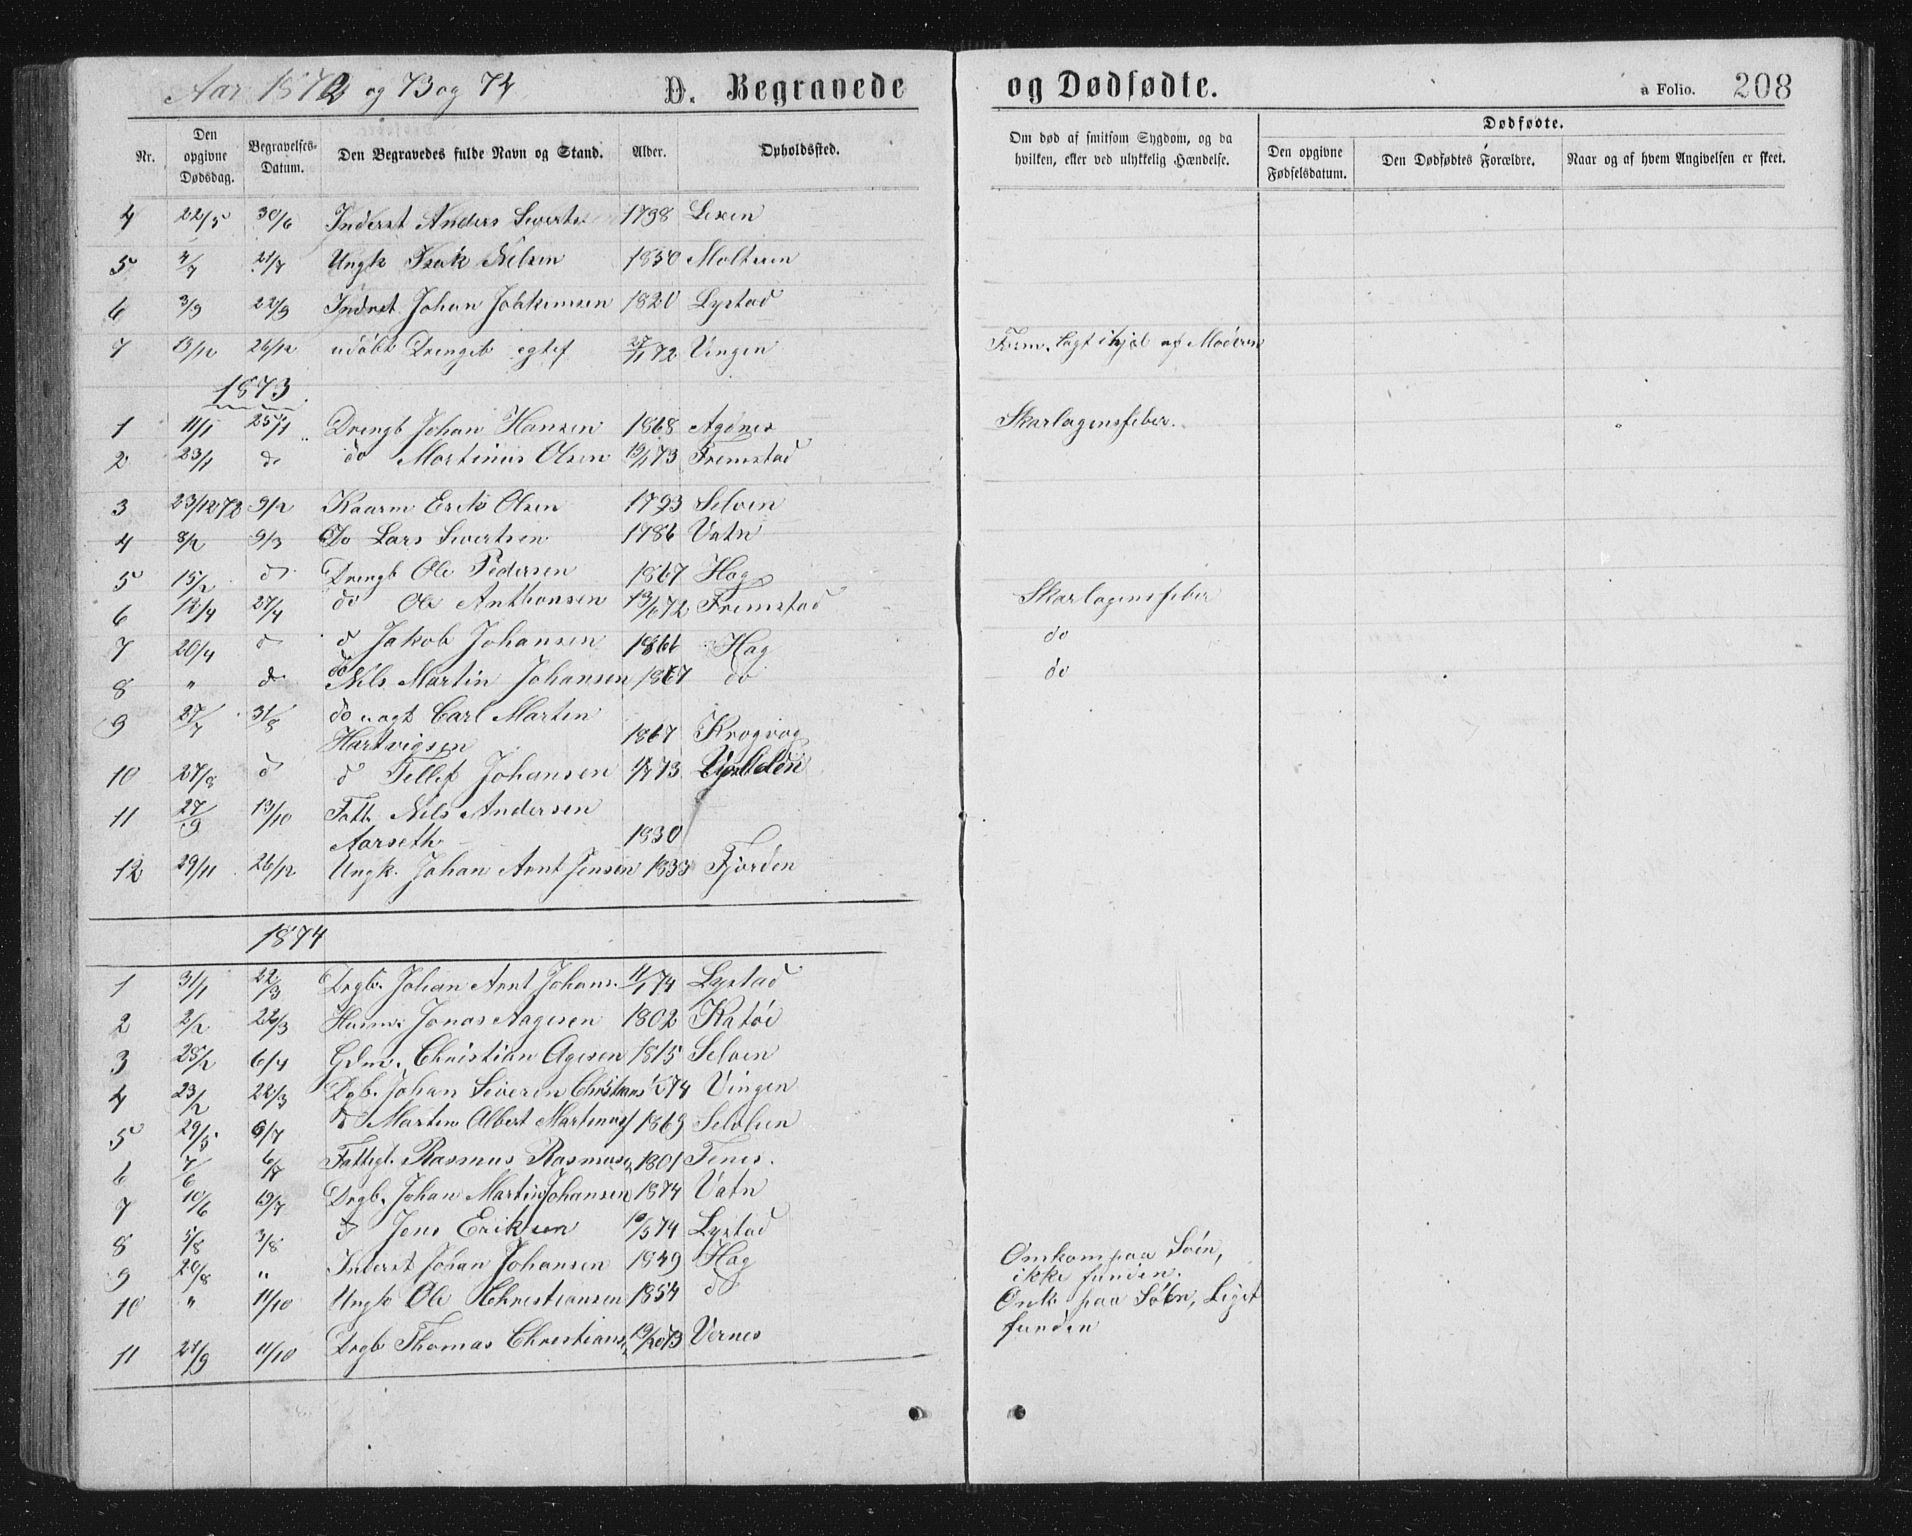 Aar 1872 og 73 og 74
D. Begravede og Dødfødte.
a Folio. 208
Nr. Den opgivne Dødsdag. Begravelses-Datum. Den Begravedes fulde Navn og Stand. Alder. Opholdssted. Om død af smitsom Sygdom, og da hvilken, eller ved ulykkelig Hændelse. Dødfødte. Den opgivne Fødselsdatum. Den Dødfødtes Forældre. Naar og af hvem Angivelsen er skeet.
4 22/5 30/6 Inderst Anders Siverts. 1798 Lexen
5 4/7 21/7 Ungk Isak Nilsen 1850 Molteren
6 3/9 22/9 Inderst Johan Joakimsen 1820 Lystad
7 13/12 26/12 udøbt Drengeb egtef 27/11 72 Vingen Form. lagt ihjel af Moderen
1873
1 11/1 25/1 Drengb Johan Hansen 1868 Agdnes Skarlagensfeber.
2 23/1 do do Martinus Olsen 19/1 73 Fremstad
3 23/12 72 9/2 Kaarm Erik Olsen 1793 Selven
4 8/2 9/3 Do Lars Sivertsen 1786 Vatn
5 15/2 d Drengb Ole Pedersen 1867 Hog
6 12/4 27/4 do Ole Anthonsen 13/10 72 Fremstad Skarlagensfeber
7 20/4 d d Jakob Johansen 1866 Hag do
8 " do do Nils Martin Johansen 1867 do do
9 27/7 31/8 do uægt Carl Martin
Hartvigsen 1867 Krogvog
10 27/8 d d Tellef Johansen 1/7 73
11 27/9 13/10 Fatt. Nils Andersen
Aarseth 1830
12 29/11 26/12 Ungk. Johan Arnt Jensen 1833 Fjorden
1874
1 31/1 22/3 Drgb. Johan Arnt Johans. 11/1 74 Lystad
2 2/2 22/3 Husm. Jonas Aagesen 1802 Ratøi
3 25/2 6/4 Gdm. Christian Agesen 1815 Selven
4 23/2 22/3 Dgb. Johan Siverin Christians 74 Vingen
5 29/5 6/7 d Martin Albert Martinus 1869 Selven
6 7/6 6/7 Fattigl. Rasmus Rasmusen 1801 Tenes.
7 10/6 19/7 Drgb. Johan Martin Johansen 1874 Vatn
8 5/8 3/8 d Jens Eriksen 10/5 74 Lystad
9 20/8 " Inderst Johan Johansen 1849 Hag Omkom paa Søen,
ikke funden.
10 " 11/10 Ungk Ole Christiansen 1854 d Omk. paa Søen, Liget
funden
11 21/9 11/10 Drgb Thomas Christians. 19/10 73 Vernes